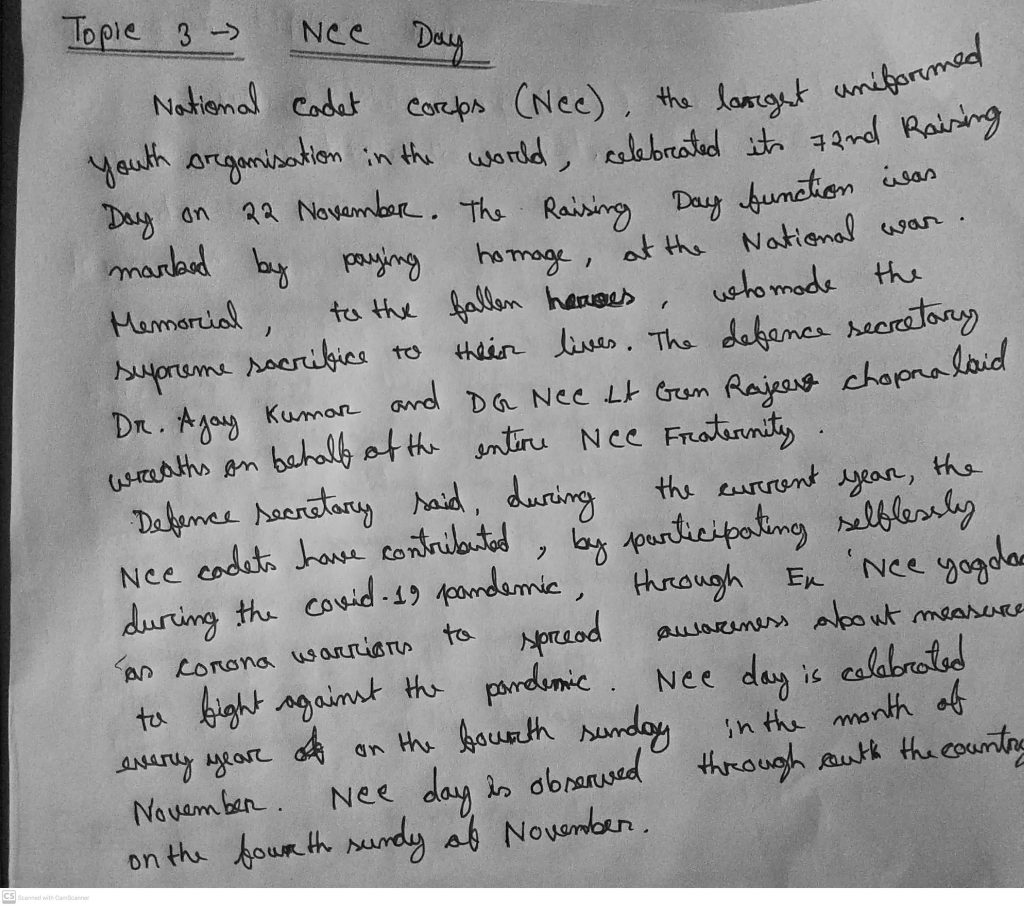 Topic 3 → Ncc Day
National Cadet corps (Ncc), the largest uniformed
youth organisation in the world, celebrated its 72nd Raising
Day on 22 November. The Raising Day function was
marked by paying homage, at the National war.
Memorial, to the fallen heroes, who made the
supreme sacrifice to their lives. The defence secretary
Dr. Ajay Kumar and DG Ncc Lt Gen Rajeev chopra laid
wreaths on behalf of the entire Ncc Fraternity.
Defence secretary said, during the current year, the
Ncc cadets have contributed, by participating selflessly
during the covid-19 pandemic, through Ex 'Ncc yogda
'as corona warriors to spread awareness about measure
to fight against the pandemic. Ncc day is celebrated
every year on the fourth sunday in the month of
November. Ncc day is observed through outh the country
on the fourth sundy of November.
CS Scanned with CamScanner